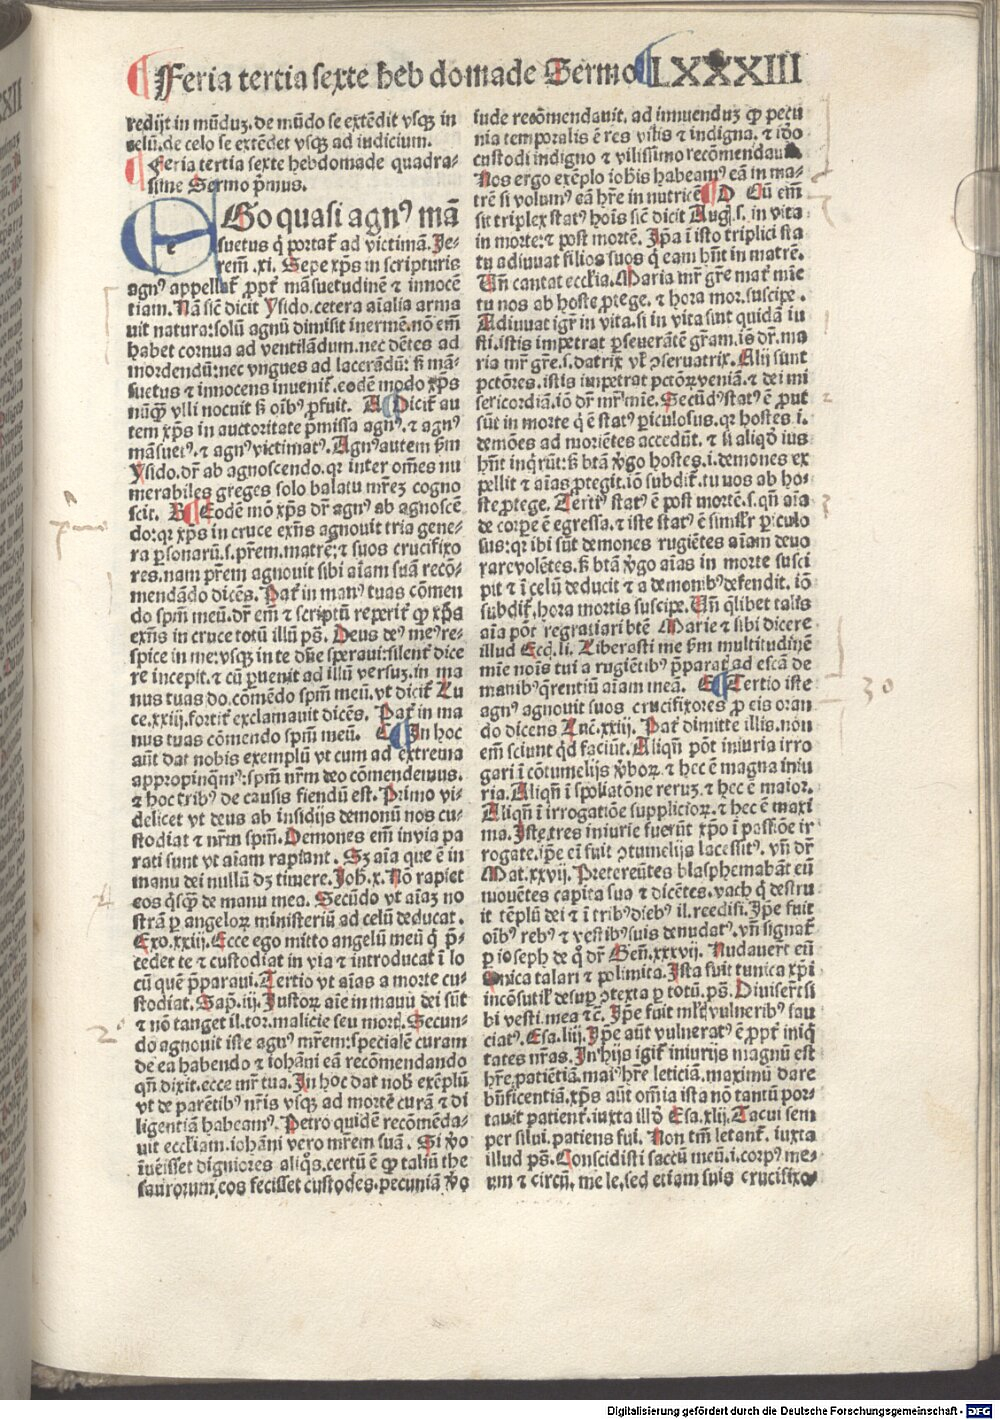 Feria tertia sexte heb domade Sermo LXXXIII
redijt in mūduz. de mūdo se extēdit vsqz in
celū. de celo se extēdet vsqz ad iudicium.
Feria tertia sexte hebdomade quadra-
sime Sermo p̄mus.
EGo quasi agnꝰ mā
suetus q̇ portat̄ ad victimā. Je-
rem̄ .xi. Sepe xp̄s in scripturis
agnꝰ appellat̄ ꝓpt̄ māsuetudinē ⁊ innocē
tiam. Nā sic̄ dicit Ysido. cetera aīalia arma
uit natura: solū agnū dimisit inermē. nō em̄
habet cornua ad ventilādum. nec dētes ad
mordendū: nec vngues ad lacerādū: s̄ mā-
suetus ⁊ innocens inuenit̄. eodē modo xp̄s
nūq̄ꝫ vlli nocuit s̄ oībꝰ ꝓfuit. A Dicit̄ au
tem xp̄s in auctoritate p̄missa agnꝰ. ⁊ agnꝰ
māsuetꝰ. ⁊ agnꝰ victimatꝰ. Agnꝰ autem s̄m
Ysido. dr̄ ab agnoscendo. qr inter om̄es nu
merabiles greges solo balatu mr̄eꝫ cogno
scit. B Eodē mō xp̄s dr̄ agnꝰ ab agnoscē
do: qr xp̄s in cruce exn̄s agnouit tria gene-
ra ꝑsonarū. s. pr̄em. matrē: ⁊ suos crucifixo
res. nam pr̄em agnouit sibi aīam suā recō-
mendādo dicēs. Pat̄ in manꝰ tuas cōmen
do spm̄ meū. dr̄ em̄ ⁊ scriptū reperit̄ ꝙ xp̄s
exn̄s in cruce totū illū ps̄. Deus deꝰ meꝰ re-
spice in me: vsqꝫ in te dn̄e speraui: silent̄ dice
re incepit. ⁊ cū ꝑuenit ad illū versuꝫ. in ma
nus tuas dn̄. cōmēdo spm̄ meū. vt dicit̄ Lu
ce. xxiij. fortit̄ exclamauit dicēs. Pat̄ in ma
nus tuas cōmendo spm̄ meū. C In hoc
aūt dat nobis exemplū vt cum ad extrema
appropinq̄mꝰ: spm̄ nr̄m deo cōmendemus.
⁊ hoc tribꝰ de causis fiendū est. Primo vi-
delicet vt deus ab insidijs demonū nos cu-
stodiat ⁊ nr̄m spm̄. Demones em̄ in via pa
rati sunt vt aīam rapiant. Sꝫ aīa que ē in
manu dei nullū dꝫ timere. Joh̄. x. Nō rapiet
eos q̇sq̄ꝫ de manu mea. Secūdo vt aīaꝫ no
strā ꝑ angeloꝝ ministeriū ad celū deducat.
Exo. xxiij. Ecce ego mitto angelū meū q̇ p̄-
cedet te ⁊ custodiat in via ⁊ introducat ī lo
cū quē p̄paraui. Tertio vt aīas a morte cu-
stodiat. Sap̄. iij. Justoꝝ aīe in manu dei sūt
⁊ nō tanget il. tor. malicie seu mort̄. Secun-
do agnouit iste agnꝰ mr̄em: specialē curam
de ea habendo ⁊ iohāni eā recōmendando
qn̄ dixit. ecce mr̄ tua. In hoc dat nob̄ exēplū
vt de parētibꝰ nr̄is vsqꝫ ad mortē curā ⁊ di
ligentiā habeamꝰ. Petro quidē recōmēda-
uit eccl̄iam. iohāni vero mr̄em suā. Si v̄o
īuēisset digniores aliq̊s. certū ē ꝙ taliū the
saurorum eos fecisset custodes. pecuniā v̄o
iude recōmendauit. ad innuenduꝫ ꝙ pecu
nia temporalis ē res vilis ⁊ indigna. ⁊ iō
custodi indigno ⁊ vilissimo recōmendauit.
Nos ergo exēplo iohis habeamꝰ eā in ma-
trē si volumꝰ eā hr̄e in nutricē D Cū em̄
sit triplex statꝰ hoīs sic̄ dicit Augꝰ. s. in vita
in morte: ⁊ post mortē. Ip̄a ī isto triplici sta
tu adiuuat filios suos q̇ eam hn̄t in matrē.
Vn̄ cantat eccl̄ia. Maria mr̄ gr̄e mat̄ mīe
tu nos ab hoste ꝓtege. ⁊ hora mor. suscipe.
Adiuuat igr̄ in vita. si in vita sunt quidā iu
sti. istis impetrat ꝑseuerātē gr̄am. iō dr̄. ma
ria mr̄ gr̄e. s. datrix vl̓ ꝯseruatrix. Alij sunt
pctōres. istis impetrat pctōꝝ veniā. ⁊ dei mi
sericordiā. iō dr̄ mr̄ mīe. Secūdꝰ statꝰ ē ꝓut
sūt in morte q̇ ē statꝰ ꝑiculosus. qr hostes i.
demōes ad moriētes accedūt. ⁊ si aliqd̄ ius
hn̄t inq̇rūt: s̄ btā v̄go hostes. i. demones ex
pellit ⁊ aīas ꝓtegit. iō subdit̄. tu nos ab ho-
ste ꝓtege. Tertiꝰ statꝰ ē post mortē. s. qn̄ aīa
de corpe ē egressa. ⁊ iste statꝰ ē simil̓r ꝑiculo
sus: qr ibi sūt demones rugiētes aīam deuo
rare volētes. s̄ btā v̄go aīas in morte susci
pit ⁊ ī celū deducit ⁊ a demonibꝰ defendit. iō
subdit̄. hora mortis suscipe. Vn̄ q̇libet talis
aīa pōt regratiari btē Marie ⁊ sibi dicere
illud Ecci. li. Liberasti me s̄m multitudinē
mīe noīs tui a rugiētibꝰ p̄paratꝰ ad escā de
manibꝰ q̄rentiū aīam meā. E Tertio iste
agnꝰ agnouit suos crucifixores ꝓ eis oran
do dicens Luc̄. xxiij. Pat̄ dimitte illis. non
em̄ sciunt qd̄ faciūt. Aliqn̄ pōt iniuria irro
gari ī cōtumelijs v̄boꝝ ⁊ hec ē magna iniu
ria. Aliqn̄ ī spoliatōne reruꝫ. ⁊ hec ē maior.
Aliqn̄ ī irrogatiōe supplicioꝝ. ⁊ hec ē maxi
ma. Iste tres iniurie fuerūt xp̄o ī passiōe ir
rogate. ip̄e em̄ fuit ꝯtumelijs lacessitꝰ. vn̄ dr̄
Mat. xxvij. Pretereūtes blasphemabāt eū
mouētes capita sua ⁊ dicētes. vach q̇ destru
it tēplū dei ⁊ ī tribꝰ diebꝰ il. reedifi. Ip̄e fuit
oībꝰ rebꝰ ⁊ vestibꝰ suis denudatꝰ. vn̄ signat̄
ꝑ ioseph de q̊ dr̄ Gen̄. xxxvij. Nudauer̄t eū
tunica talari ⁊ polimita. Ista fuit tunica xp̄i
incōsutil̓ desuꝑ ꝯtexta ꝑ totū. ps̄. Diuiser̄t si
bi vesti. mea ⁊c̄. Ip̄e fuit ml̓tꝭ vulneribꝰ sau
ciatꝰ. Esa. liij. Ip̄e aūt vulneratꝰ ē ꝓpt̄ iniq̇
tates nr̄as. In hijs igit̄ iniurijs magnū est
hr̄e patiētiā. maiꝰ hr̄e leticiā. maximū dare
bn̄ficentiā. xp̄s aūt om̄ia ista nō tantū por-
tauit patient̄. iuxta illd̄ Esa. xlij. Tacui sem
per silui. patiens fui. Non tm̄ letant̄. iuxta
illud ps̄. Conscidisti saccū meū. i. corpꝰ me-
um ⁊ circū. me le. sed etiam suis crucifixo-
Digitalisierung gefördert durch die Deutsche Forschungsgemeinschaft - DFG